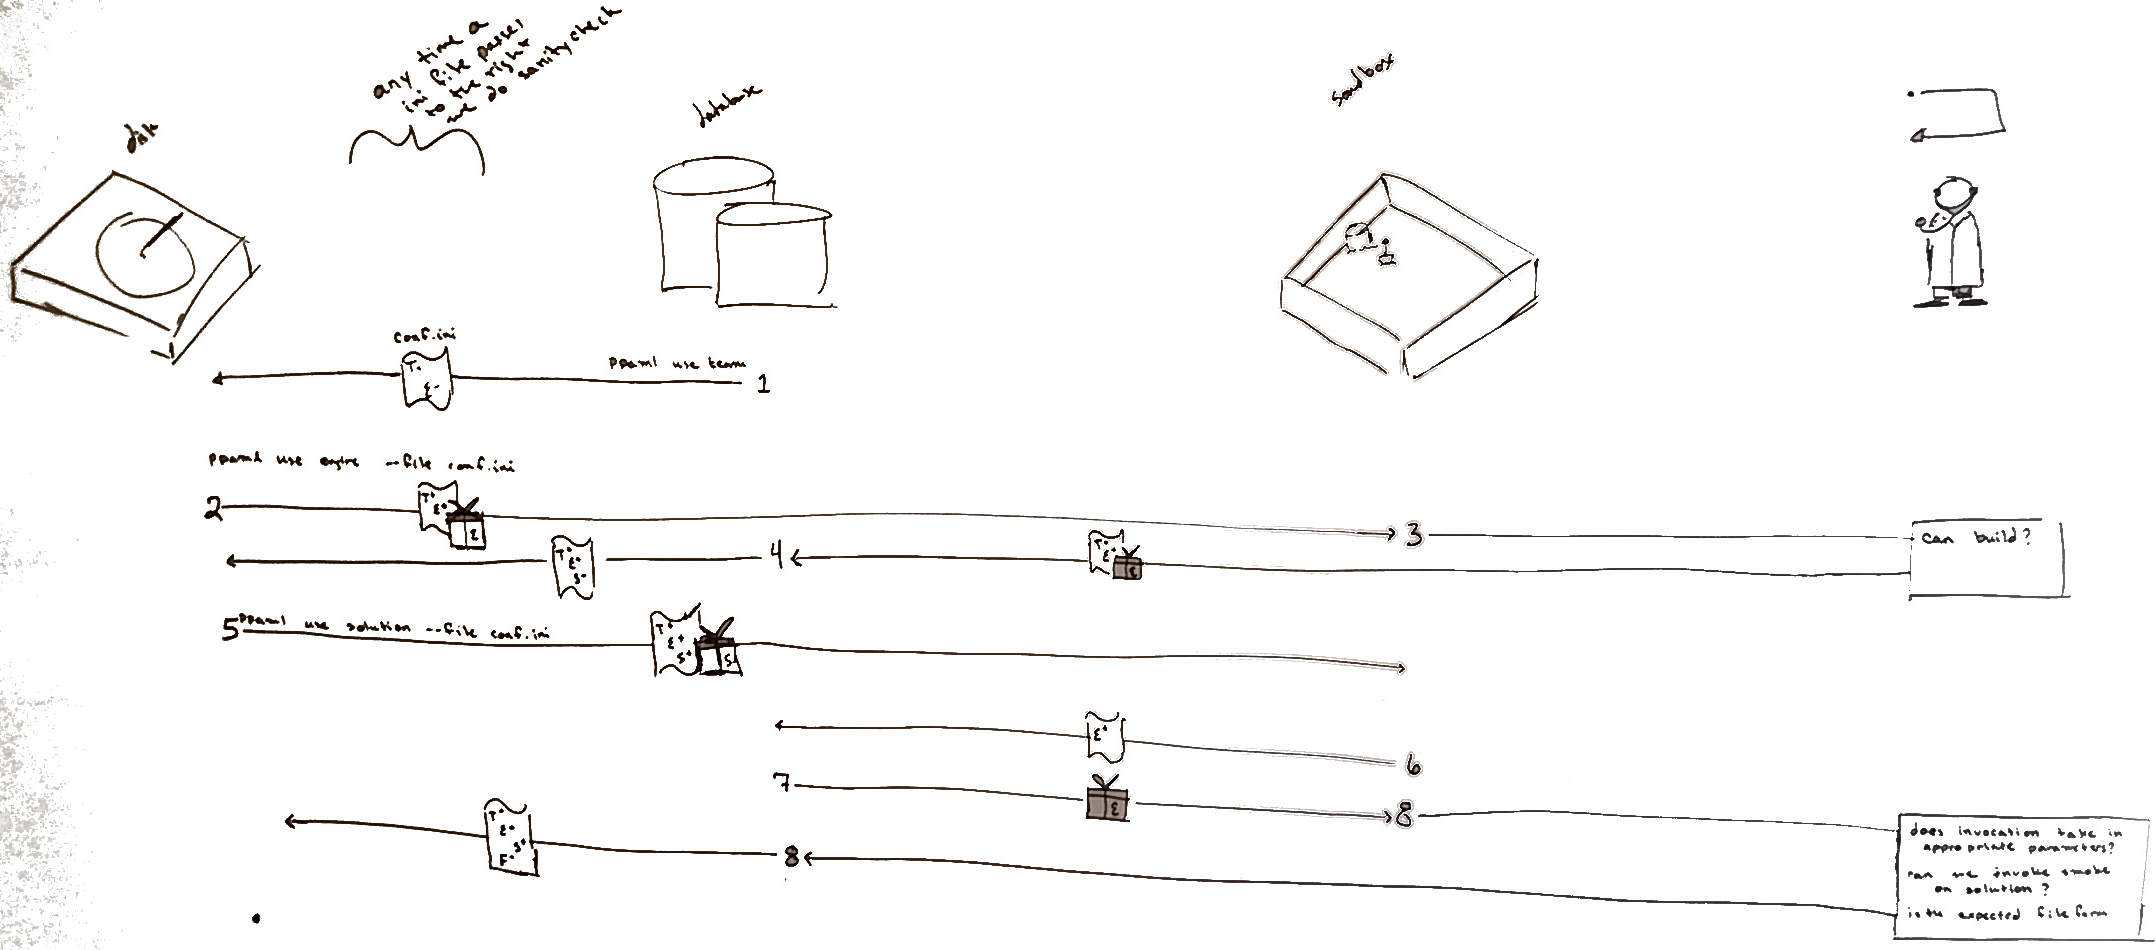 any time a
ini file passes
to the right
we do sanity check
disk
database
sandbox
conf.ini
T-
E-
ppaml use team
1
ppaml use engine --file conf.ini
2
T+
E+
E
3
can build?
T+
E+
S-
4
T+
E+
E
5
ppaml use solution --file conf.ini
T+
E+
S+
S
E+
6
7
E
8
T+
E+
S+
F-
8
does invocation take in
appropriate parameters?
can we invoke smoke
on solution?
is the expected file form